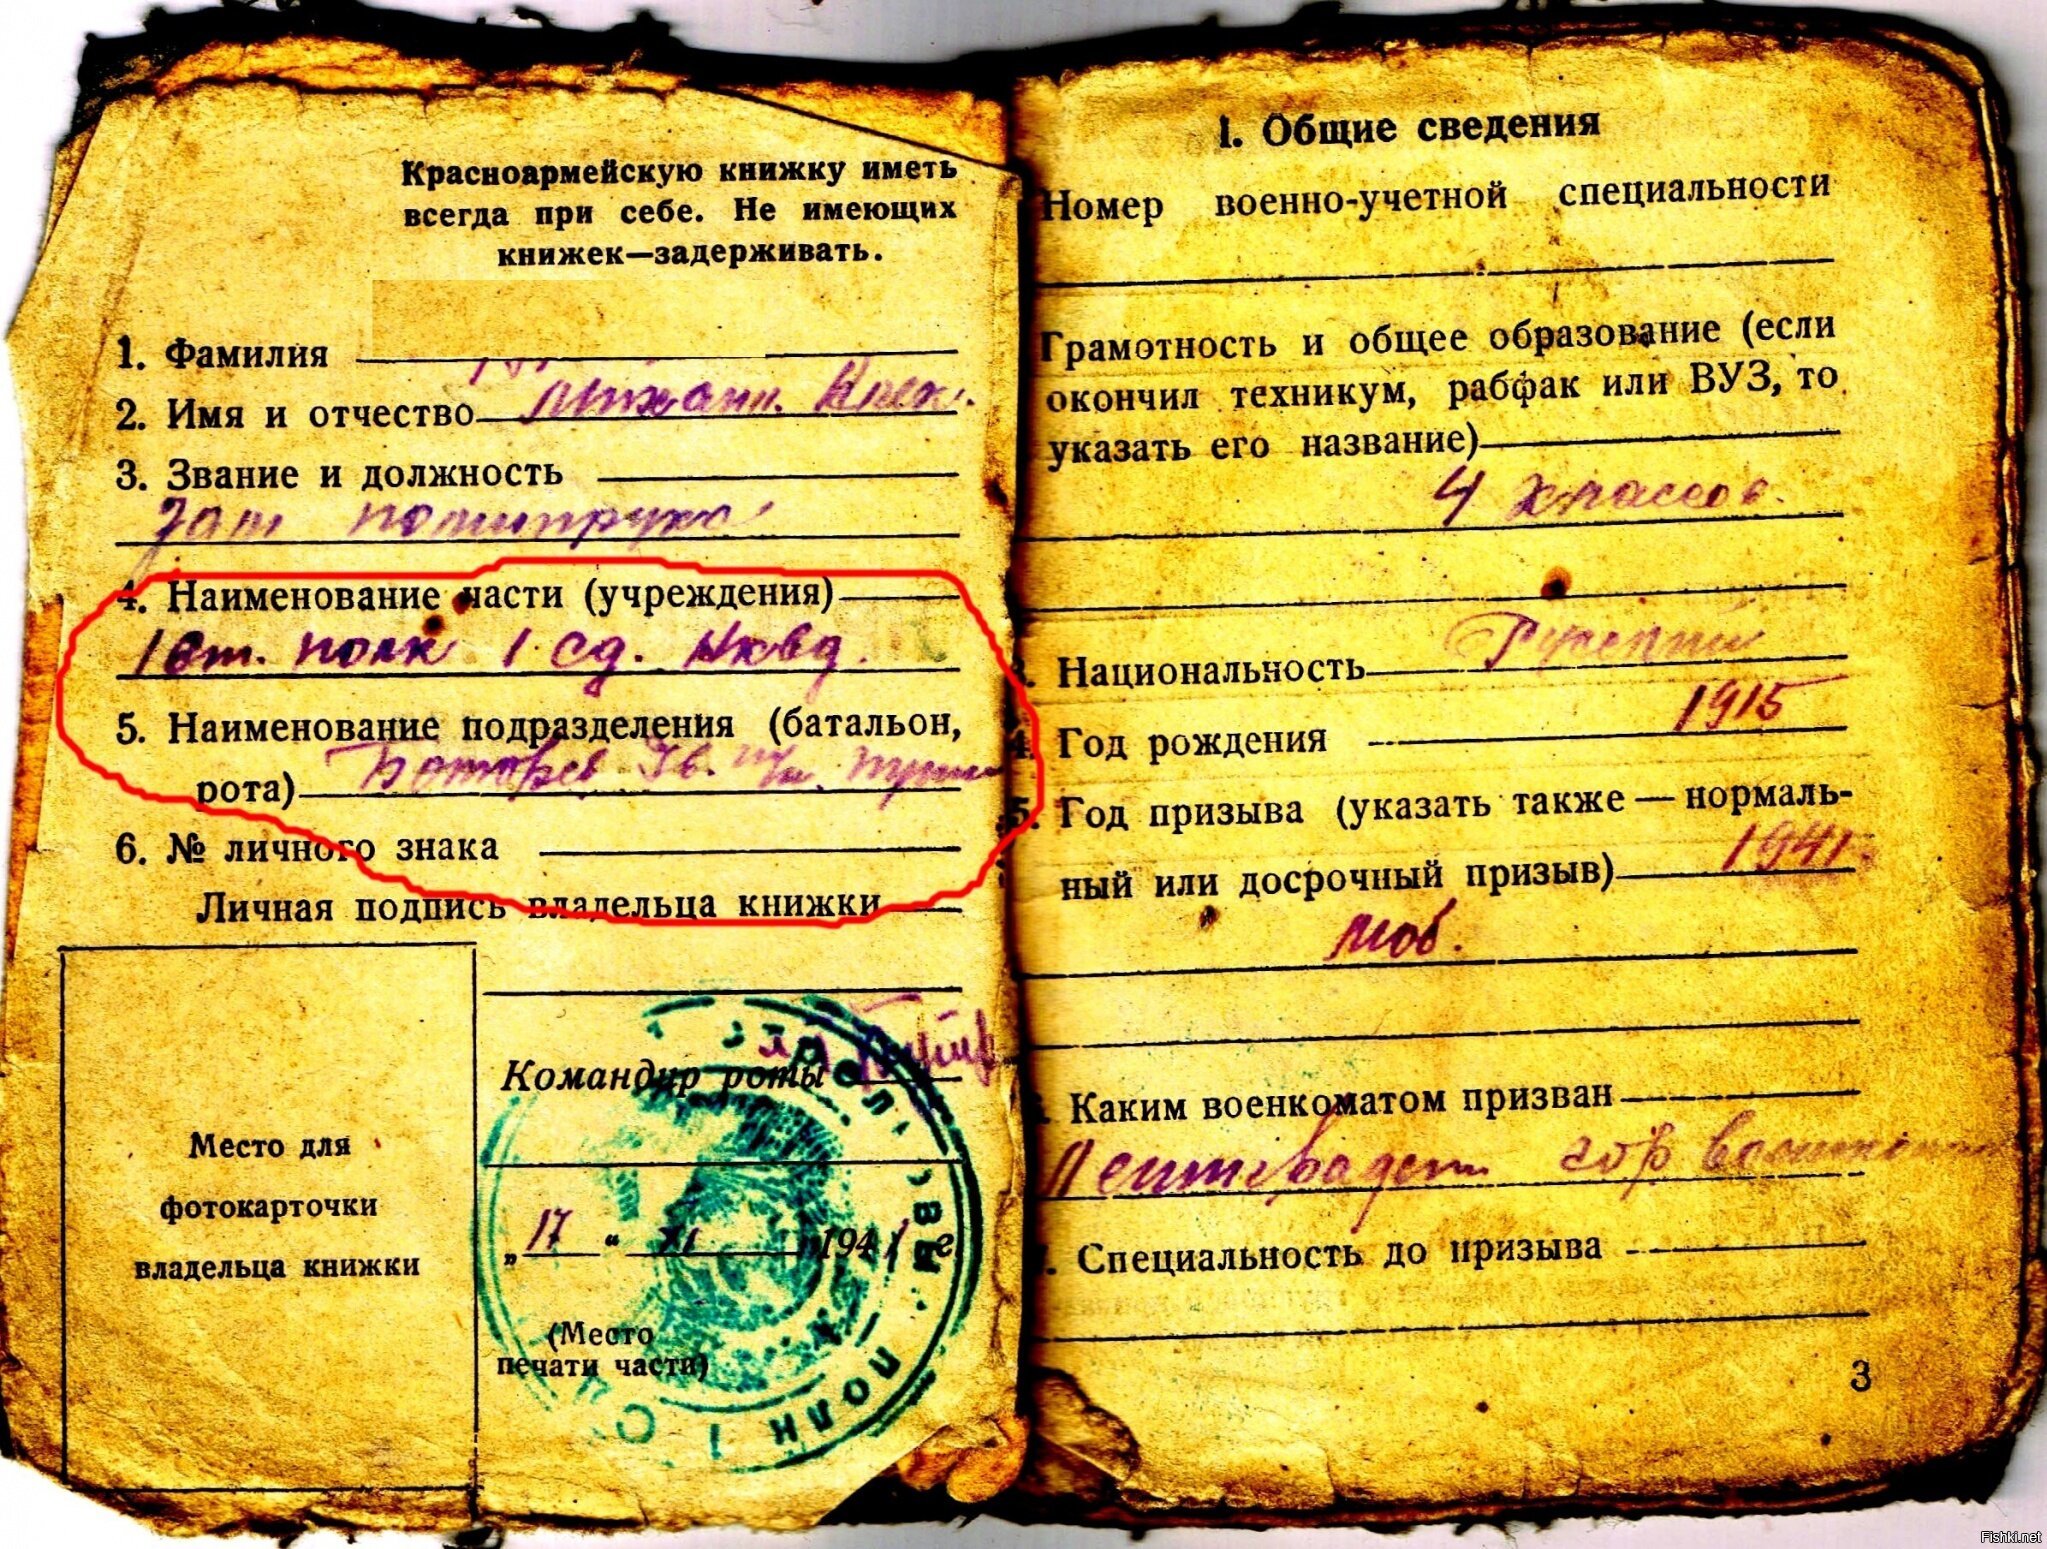 Красноармейскую книжку иметь
всегда при себе. Не имеющих
книжек—задерживать.
1. Фамилия
2. Имя и отчество Михаил. Алек.
3. Звание и должность
Зам политрука
4. Наименование части (учреждения)
1 ст. полк 1 сд. Нквд.
5. Наименование подразделения (батальон,
рота)
6. № личного знака
Личная подпись владельца книжки
Место для
фотокарточки
владельца книжки
Командир роты
„17“ XI 1941 г.
(Место
печати части)
ПОЛК 1 С
I. Общие сведения
Номер военно-учетной специальности
Грамотность и общее образование (если
окончил техникум, рабфак или ВУЗ, то
указать его название)
4 классов.
3. Национальность Русский
4. Год рождения 1915
5. Год призыва (указать также — нормаль-
ный или досрочный призыв) 1941.
моб.
Каким военкоматом призван
Ленинградским гор
Специальность до призыва
3
Fishki.net